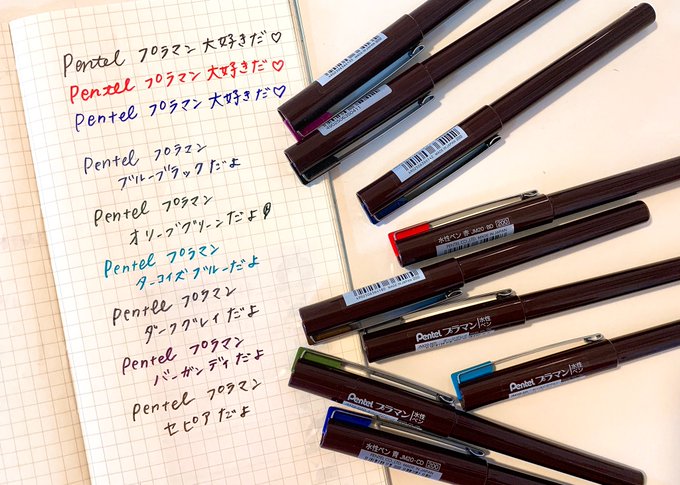 Pentel プラマン 大好きだ♡
Pentel プラマン 大好きだ♡
Pentel プラマン 大好きだ♡
Pentel プラマン
ブルーブラックだよ
Pentel プラマン
オリーブグリーンだよ
Pentel プラマン
ターコイズブルーだよ
Pentel プラマン
ダークグレイだよ
Pentel プラマン
バーガンディだよ
Pentel プラマン
セピアだよ
水性ペン 赤 JM20-BD 200
Pentel プラマン 水性ペン
Pentel プラマン 水性ペン
Pentel プラマン 水性ペン
水性ペン 青 JM20-CD 200